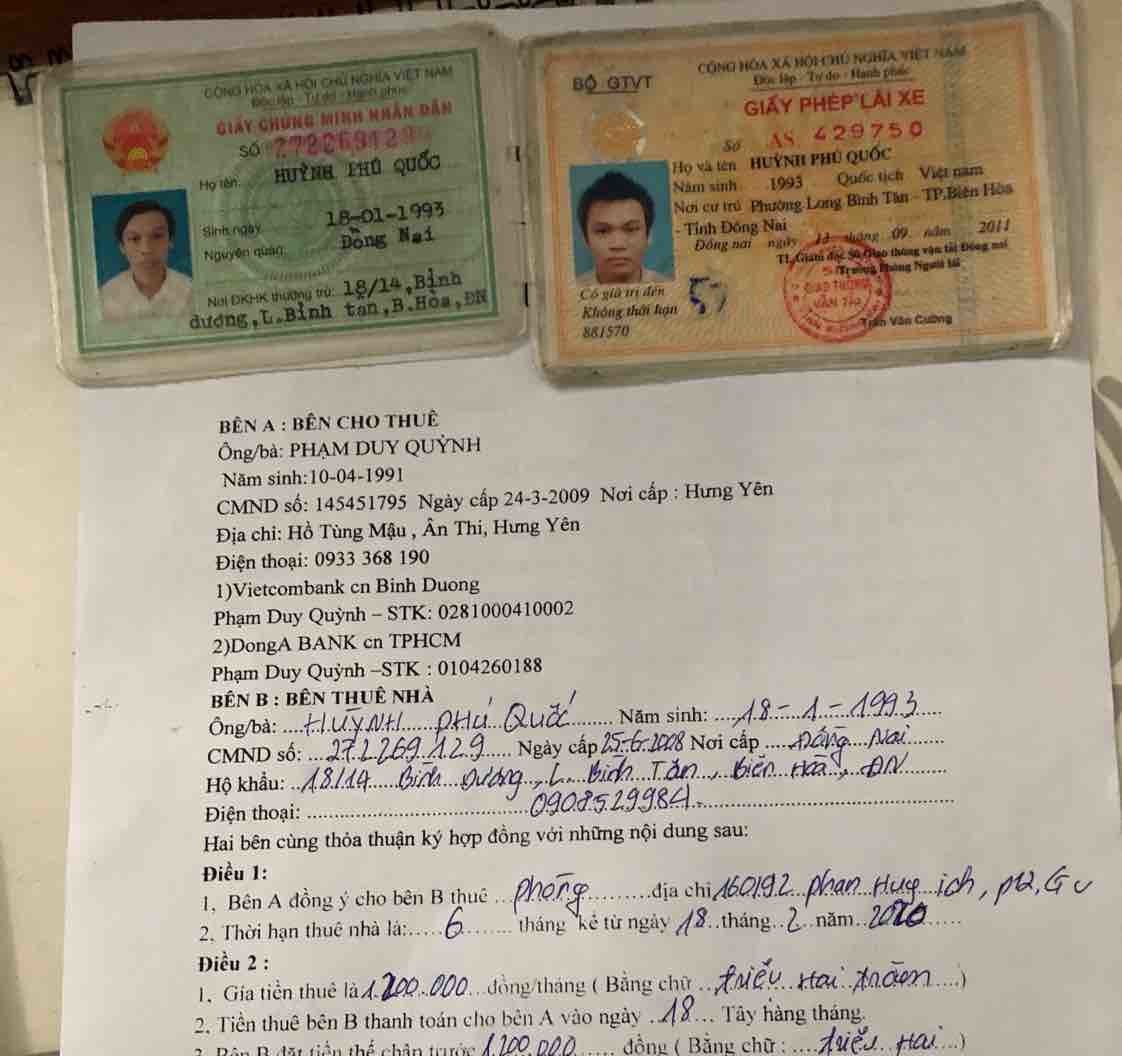 CỘNG HÒA XÃ HỘI CHỦ NGHĨA VIỆT NAM
Độc lập - Tự do - Hạnh phúc
GIẤY CHỨNG MINH NHÂN DÂN
SỐ 272269129
Họ tên: HUỲNH PHÚ QUỐC
Sinh ngày 18-01-1993
Nguyên quán: Đồng Nai
Nơi ĐKHK thường trú: 18/14,Bình
dương,L.Bình tân,B.Hòa,ĐN
BỘ GTVT
CỘNG HÒA XÃ HỘI CHỦ NGHĨA VIỆT NAM
Độc lập - Tự do - Hạnh phúc
GIẤY PHÉP LÁI XE
Số AS 429750
Họ và tên HUỲNH PHÚ QUỐC
Năm sinh 1993 Quốc tịch Việt nam
Nơi cư trú Phường Long Bình Tân - TP.Biên Hòa
- Tỉnh Đồng Nai
Đồng nai ngày 13 tháng 09 năm 2011
TL Giám đốc Sở Giao thông vận tải Đồng nai
Trưởng Phòng Người lái
GIAO THÔNG
VẬN TẢI
Trần Văn Cường
Có giá trị đến
Không thời hạn
881570
BÊN A : BÊN CHO THUÊ
Ông/bà: PHẠM DUY QUỲNH
Năm sinh:10-04-1991
CMND số: 145451795 Ngày cấp 24-3-2009 Nơi cấp : Hưng Yên
Địa chỉ: Hồ Tùng Mậu , Ân Thi, Hưng Yên
Điện thoại: 0933 368 190
1)Vietcombank cn Binh Duong
Phạm Duy Quỳnh – STK: 0281000410002
2)DongA BANK cn TPHCM
Phạm Duy Quỳnh –STK : 0104260188
BÊN B : BÊN THUÊ NHÀ
Ông/bà: HUỲNH PHÚ QUỐC Năm sinh: 18-1-1993
CMND số: 272269129 Ngày cấp 25-6-2008 Nơi cấp Đồng Nai
Hộ khẩu: 18/14 Bình Dương, L. Bình Tân, Biên Hoà, ĐN
Điện thoại: 0908529984
Hai bên cùng thỏa thuận ký hợp đồng với những nội dung sau:
Điều 1:
1, Bên A đồng ý cho bên B thuê phòng địa chỉ 160192 phan Huy ích, p12, Gv
2, Thời hạn thuê nhà là: 6 tháng kể từ ngày 18 tháng 2 năm 2020
Điều 2 :
1, Gía tiền thuê là 1.200.000 đồng/tháng ( Bằng chữ triệu Hai trăm )
2, Tiền thuê bên B thanh toán cho bên A vào ngày 18 Tây hàng tháng.
3, Bên B đặt tiền thế chân trước 1,200,000 đồng ( Bằng chữ : triệu Hai )